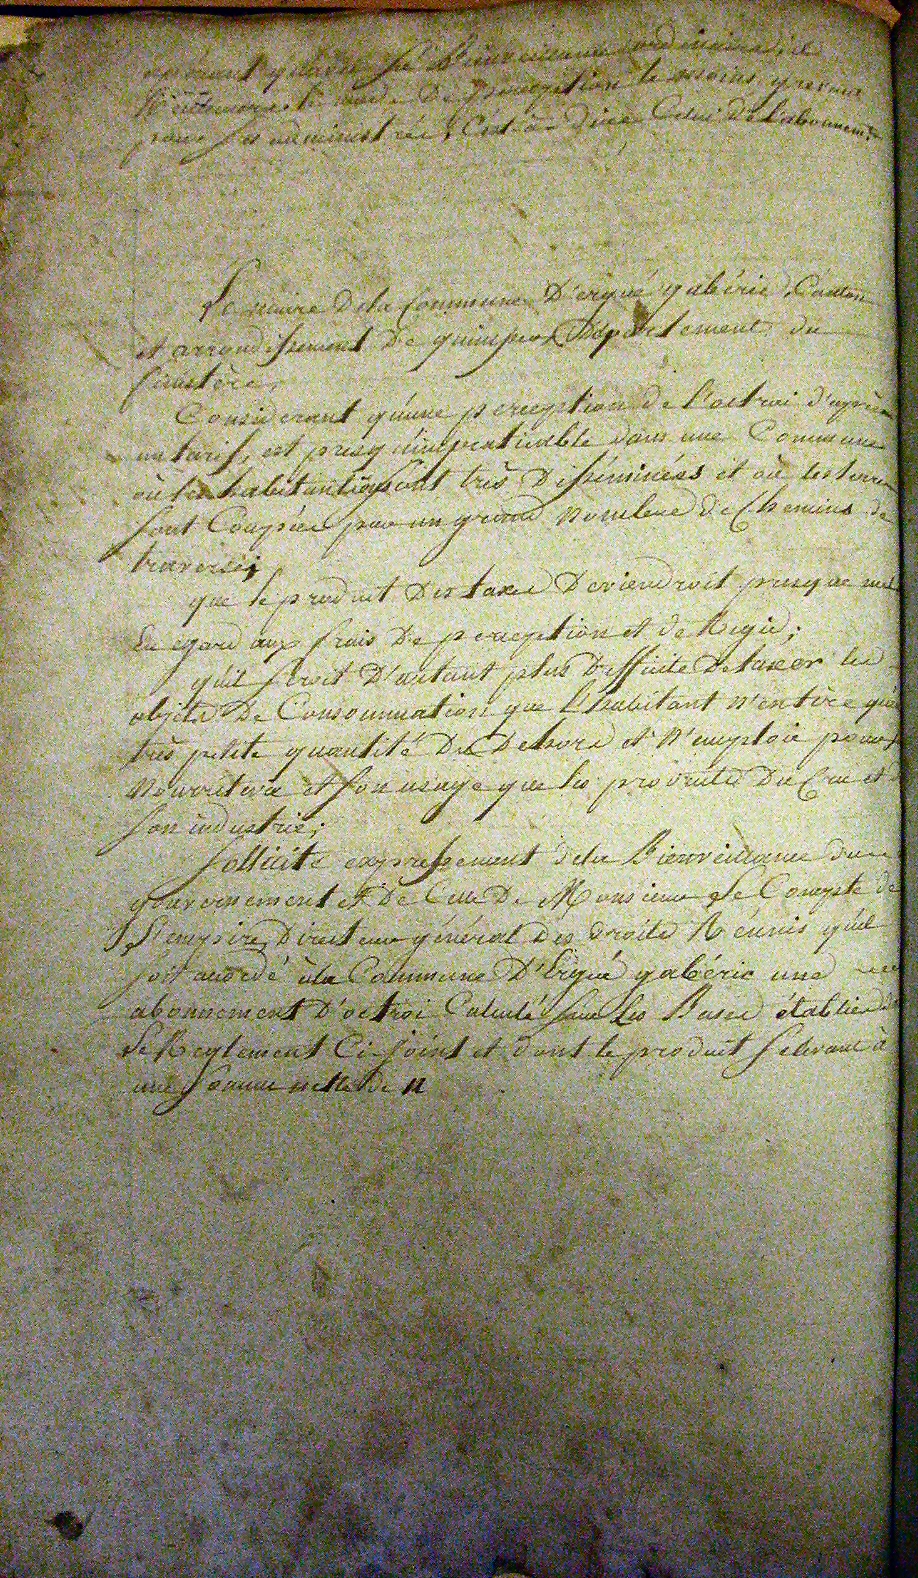 espérant qu'avec sa Bienveillance ordinaire il
le mode De perception le moins
pour ses administrés, C'est à dire Celui de l'abonnemt.
Le maire Dela Commune D'ergué gabéric, Canton
et arrondissement De quimper Département du
finistère,
Considerant qu'une perception de l'octroi d'après
un tarif, est presqu'impraticable dans une Commune
où les habitations sont très Disséminées et où les terres
sont Coupées par un grand Nombre De Chemins de
traverse;
que le produit Des taxes Deviendroit presque nul
Eu egard aux frais De perception et de Regie;
qu'il seroit D'autant plus Difficile De taxer les
objets De Consommation que L'habitant N'en tire qu'une
très petite quantité Du Dehors et N'emploie pour sa
Nourriture et son usage que les produits Du Cru et de
son industrie;
sollicite expressement dela Bienveillance du
gouvernement et De Celle De Monsieur Le Compte de
L'Empire, Directeur général Des droits Réunis qu'il
soit accordé à la Commune D'Ergué gabéric un
abonnement D'octroi Calculé sur Les Bases établies
Le Reglement Ci-joint et dont le produit s'elevant à
une somme nette de